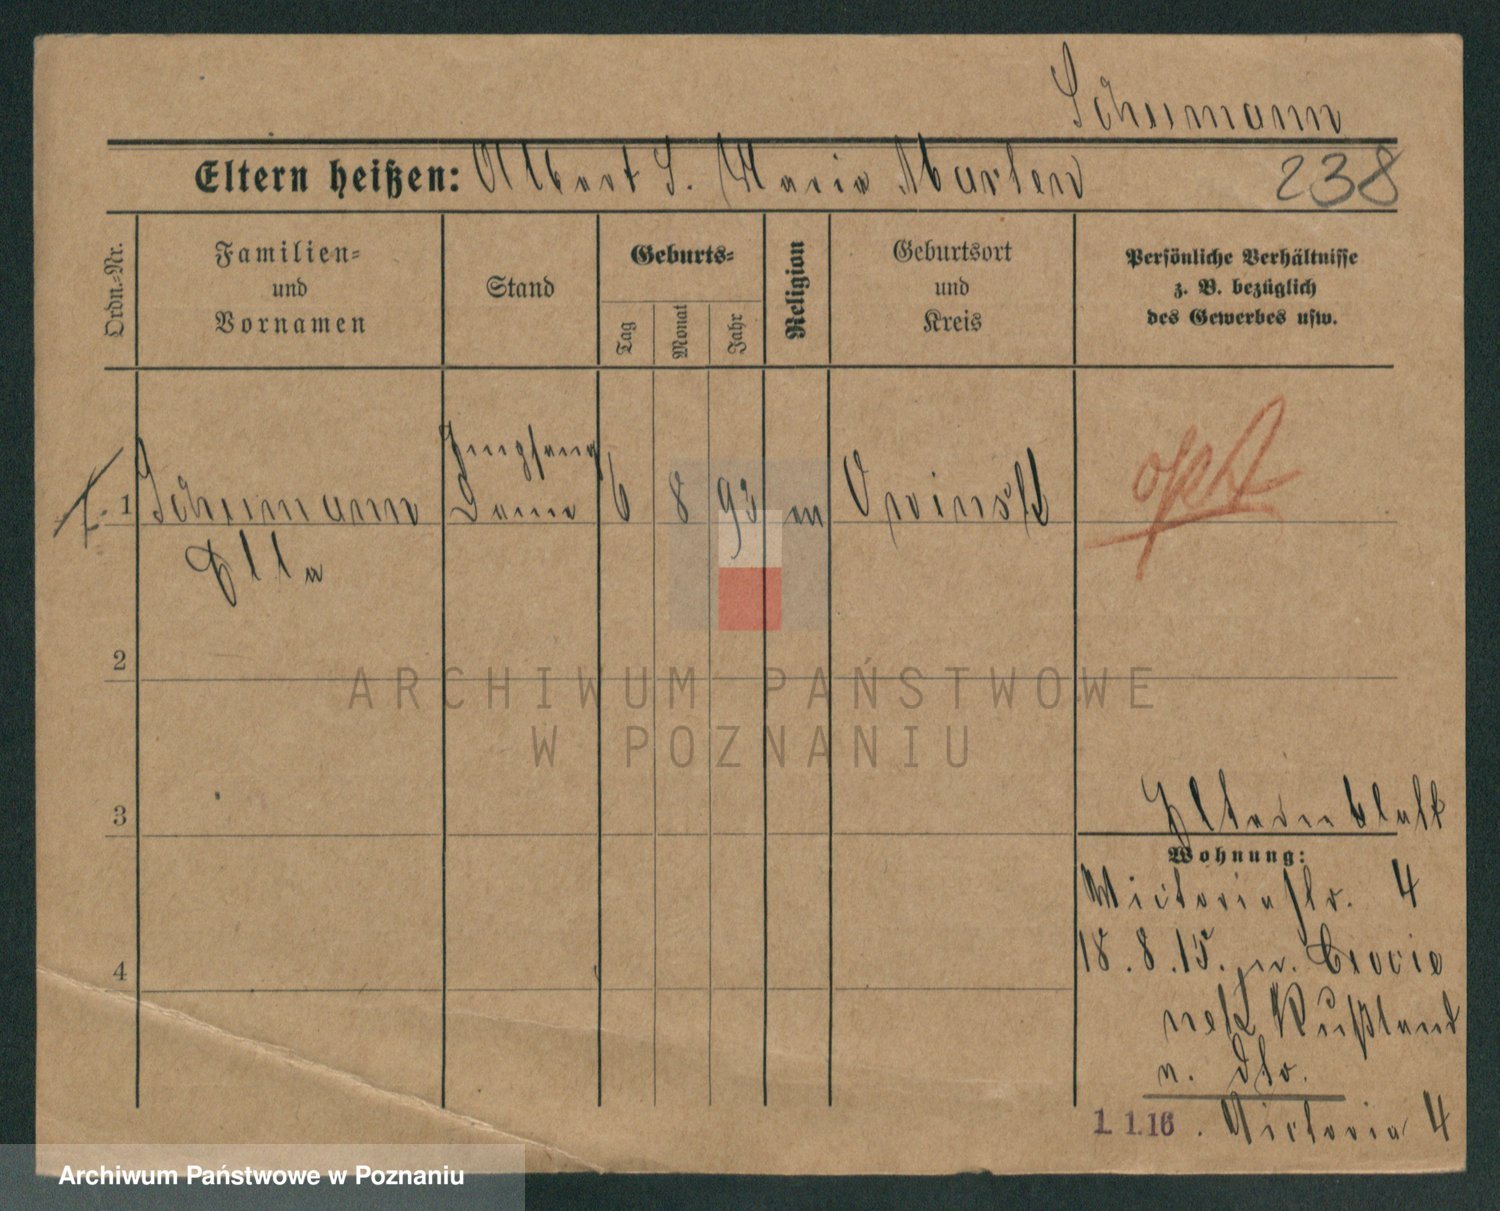 Schumann
Eltern heißen: Albert S. Maria Marten
238
Ordn.-Nr.
Familien-
und
Vornamen
Stand
Geburts-
Tag
Monat
Jahr
Religion
Geburtsort
und
Kreis
Persönliche Verhältnisse
z. B. bezüglich
des Gewerbes usw.
Empfang
1 Schumann Dame 6 8 93 Owinsk
Ella
2
3
4
Elternblatt
Wohnung:
Victoriastr. 4
18.8.15.
Rußland
1.1.16. Victoria 4
ARCHIWUM PAŃSTWOWE
W POZNANIU
Archiwum Państwowe w Poznaniu